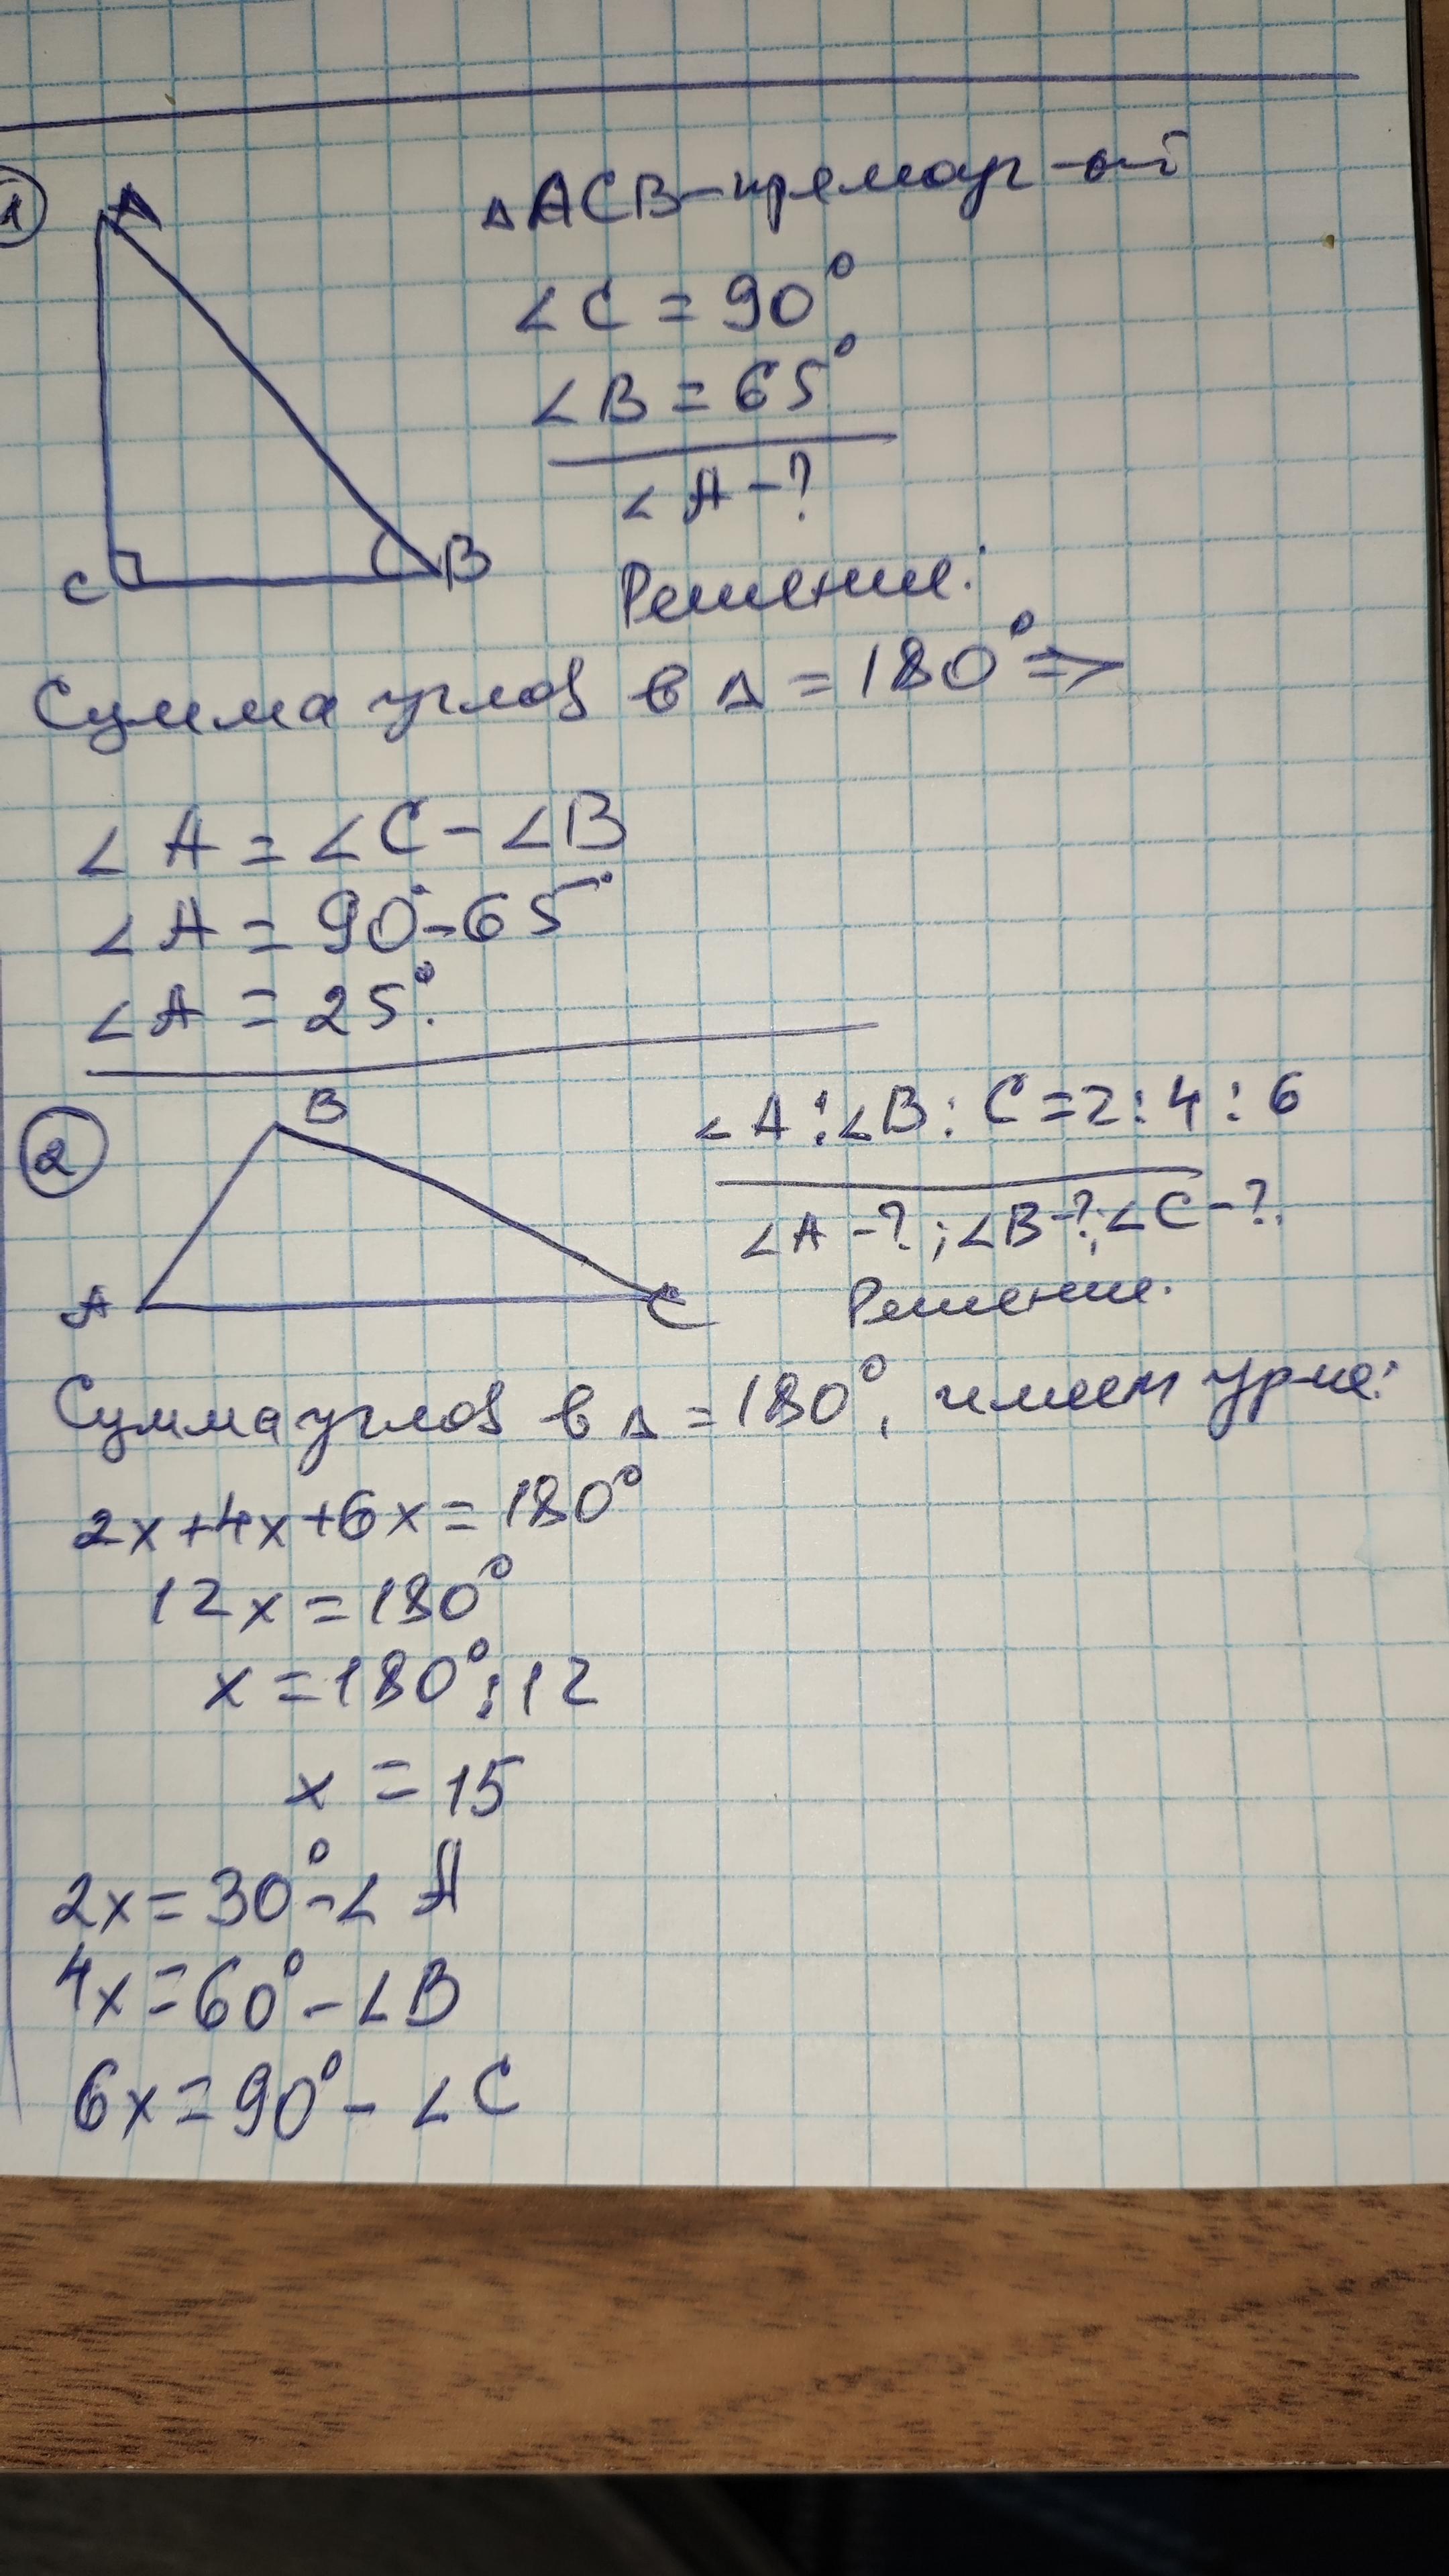 1
A
△ACB-прямоуг-ой
∠C = 90°
∠B = 65°
∠A - ?
C
B
Решение:
Сумма углов в △ = 180° =>
∠A = ∠C - ∠B
∠A = 90° - 65°
∠A = 25°.
2
B
∠A : ∠B : C = 2 : 4 : 6
∠A - ? ; ∠B - ? ; ∠C - ?
A
C
Решение.
Сумма углов в △ = 180°, имеем ур-ие:
2x + 4x + 6x = 180°
12x = 180°
x = 180° : 12
x = 15
2x = 30° - ∠A
4x = 60° - ∠B
6x = 90° - ∠C